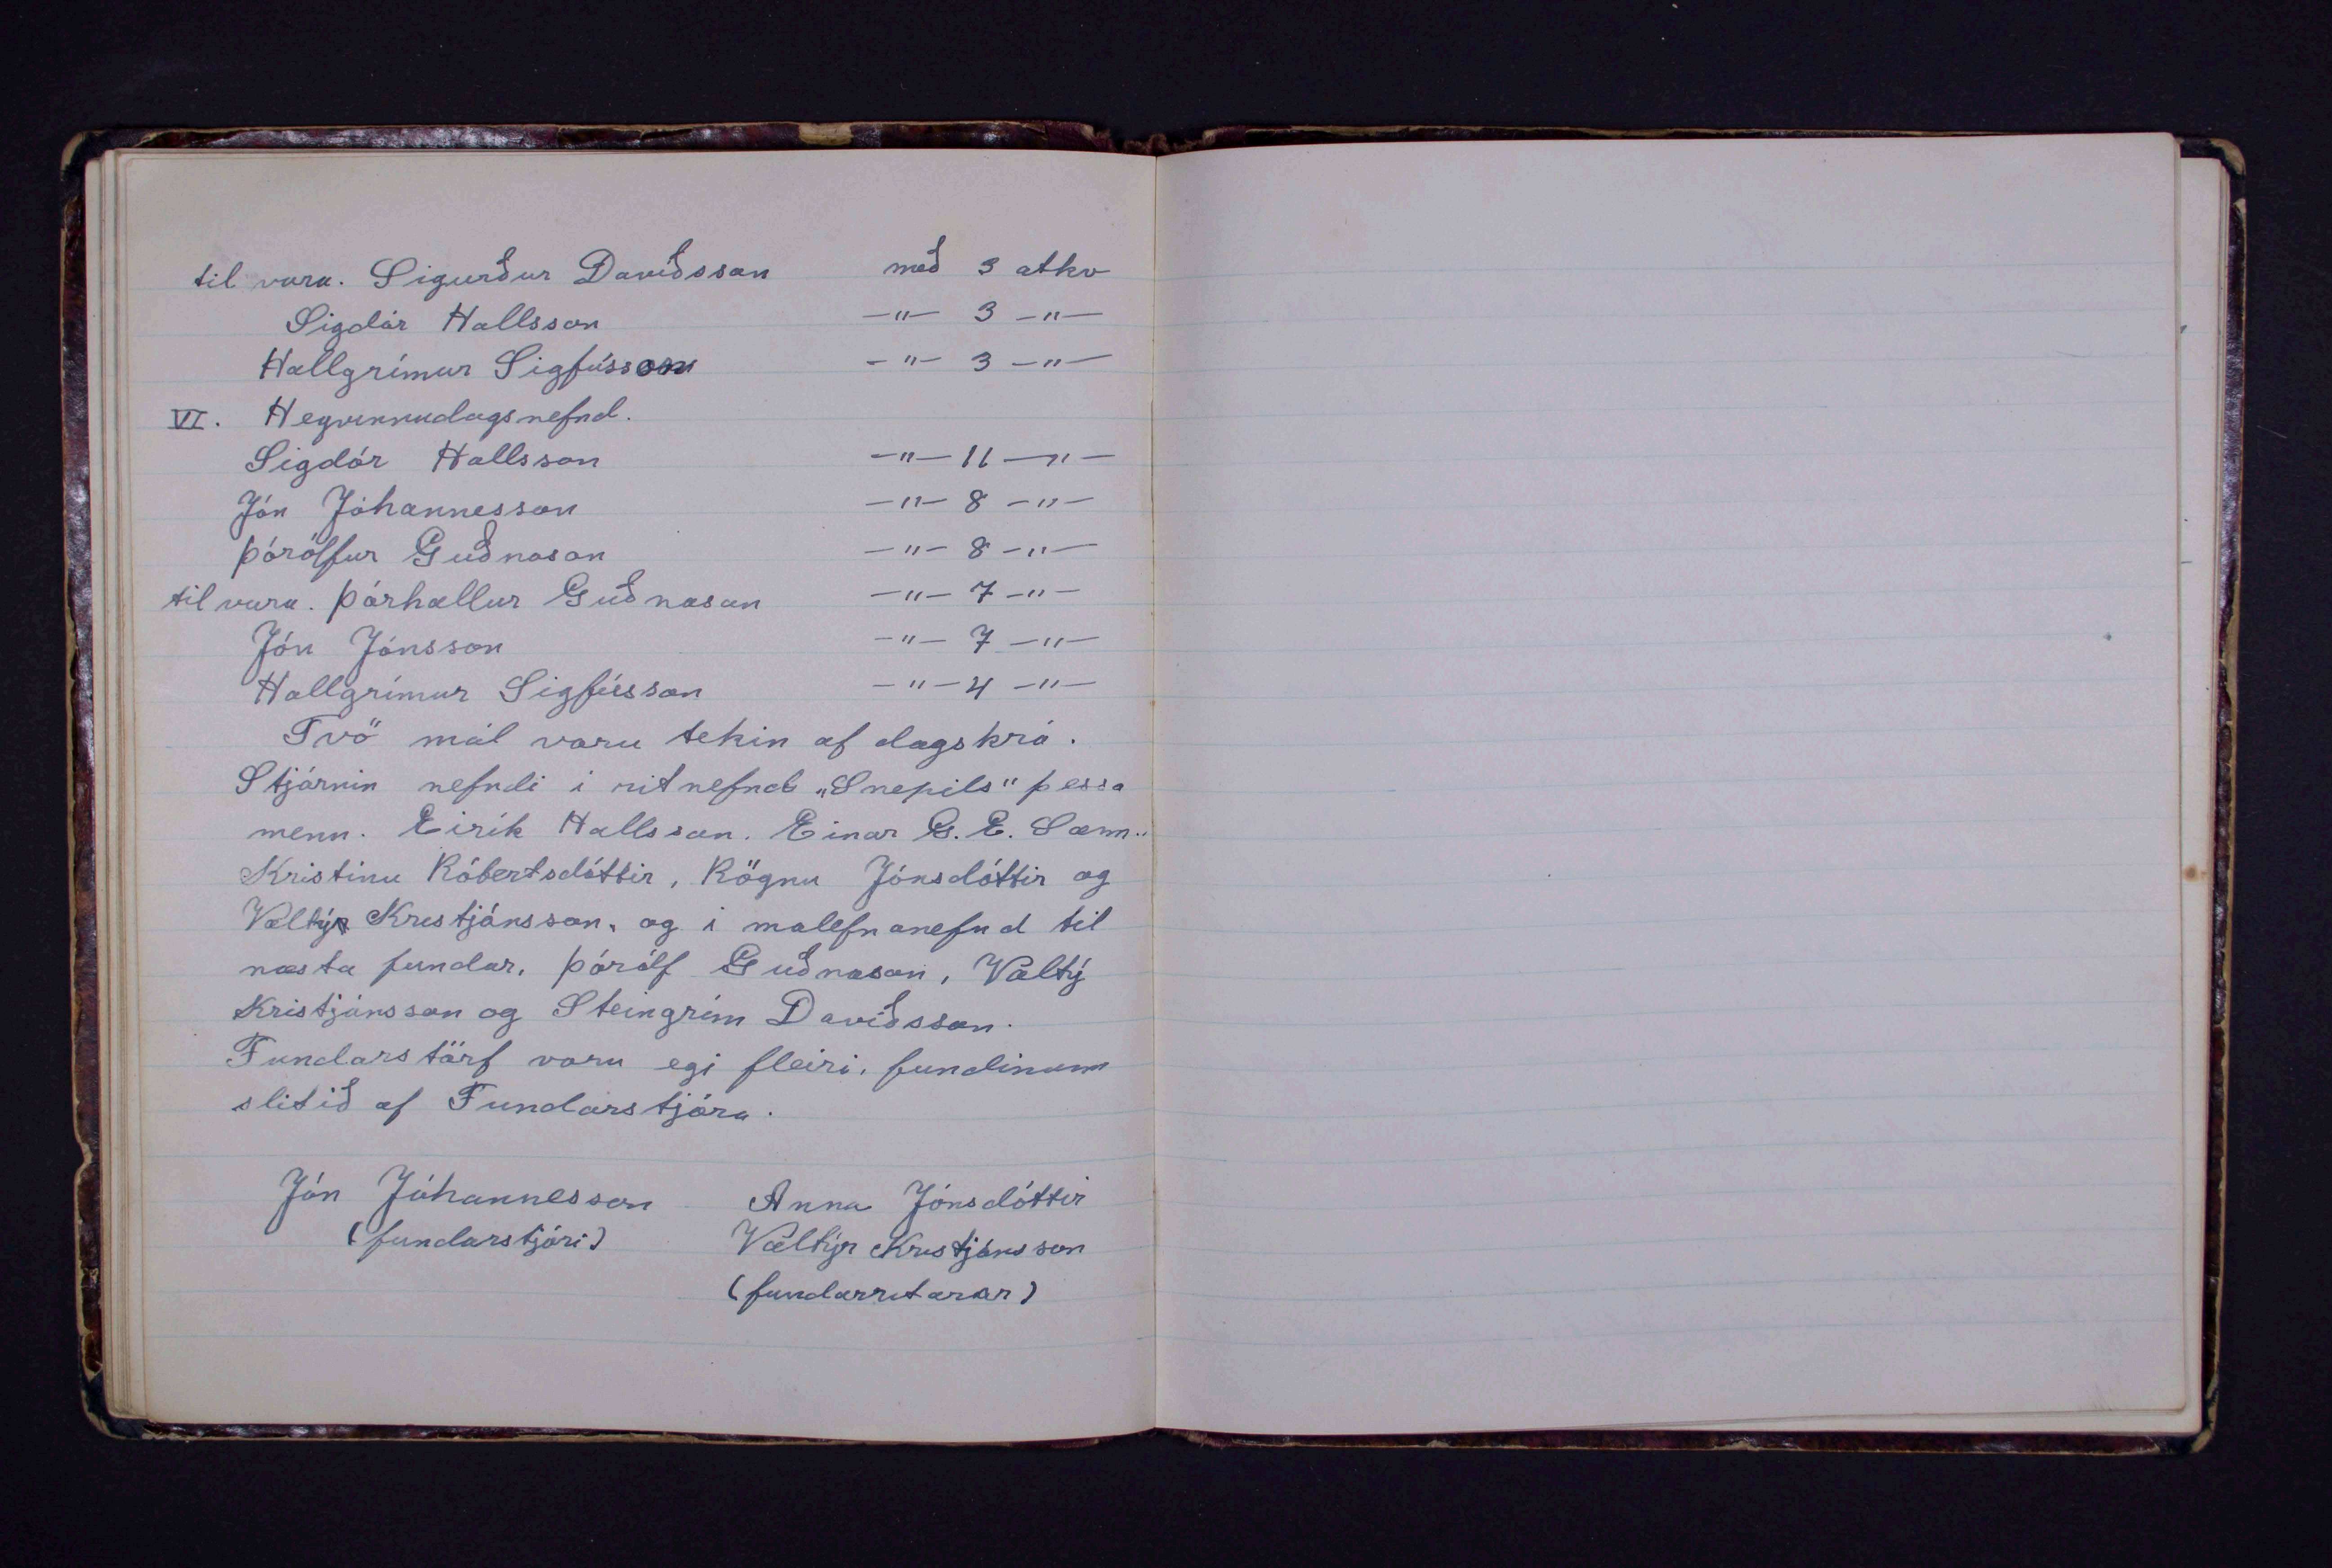 til vara. Sigurður Davíðsson með 3 atkv
Sigdór Hallsson —"— 3 —"—
Hallgrímur Sigfússon —"— 3 —"—
VI. Heyvinnudagsnefnd.
Sigdór Hallsson —"— 11 —"—
Jón Jóhannesson —"— 8 —"—
Þórólfur Guðnason —"— 8 —"—
til vara. Þórhallur Guðnason —"— 7 —"—
Jón Jónsson —"— 7 —"—
Hallgrímur Sigfússon —"— 4 —"—
Tvö mál voru tekin af dagskrá.
Stjórnin nefndi í ritnefnd „Snepils" þessa
menn. Eirík Hallsson. Einar G. E. Sæm..
Kristinu Róbertsdóttir, Rögnu Jónsdóttir og
Valtýr Kristjánsson, og í malefnanefnd til
næsta fundar, Þórólf Guðnason, Valtý
Kristjánsson og Steingrím Davíðsson.
Fundarstörf voru egi fleiri, fundinum
slitið af Fundarstjóra.
Jón Jóhannesson Anna Jónsdóttir
(fundarstjóri) Valtýr Kristjánsson
(fundarritarar)